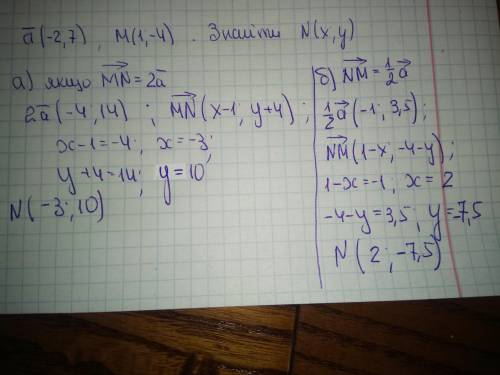 a̅(-2,7), M(1,-4). Знайти N(x,y)
а) якщо M͞N͞=2a̅
2a̅(-4,14); M͞N͞(x-1; y+4);
x-1=-4; x=-3;
y+4=14; y=10
N(-3;10)
б) N͞M͞=½a̅
½a̅(-1; 3,5);
N͞M͞(1-x; -4-y);
1-x=-1, x=2
-4-y=3,5; y=-7,5
N(2; -7,5)